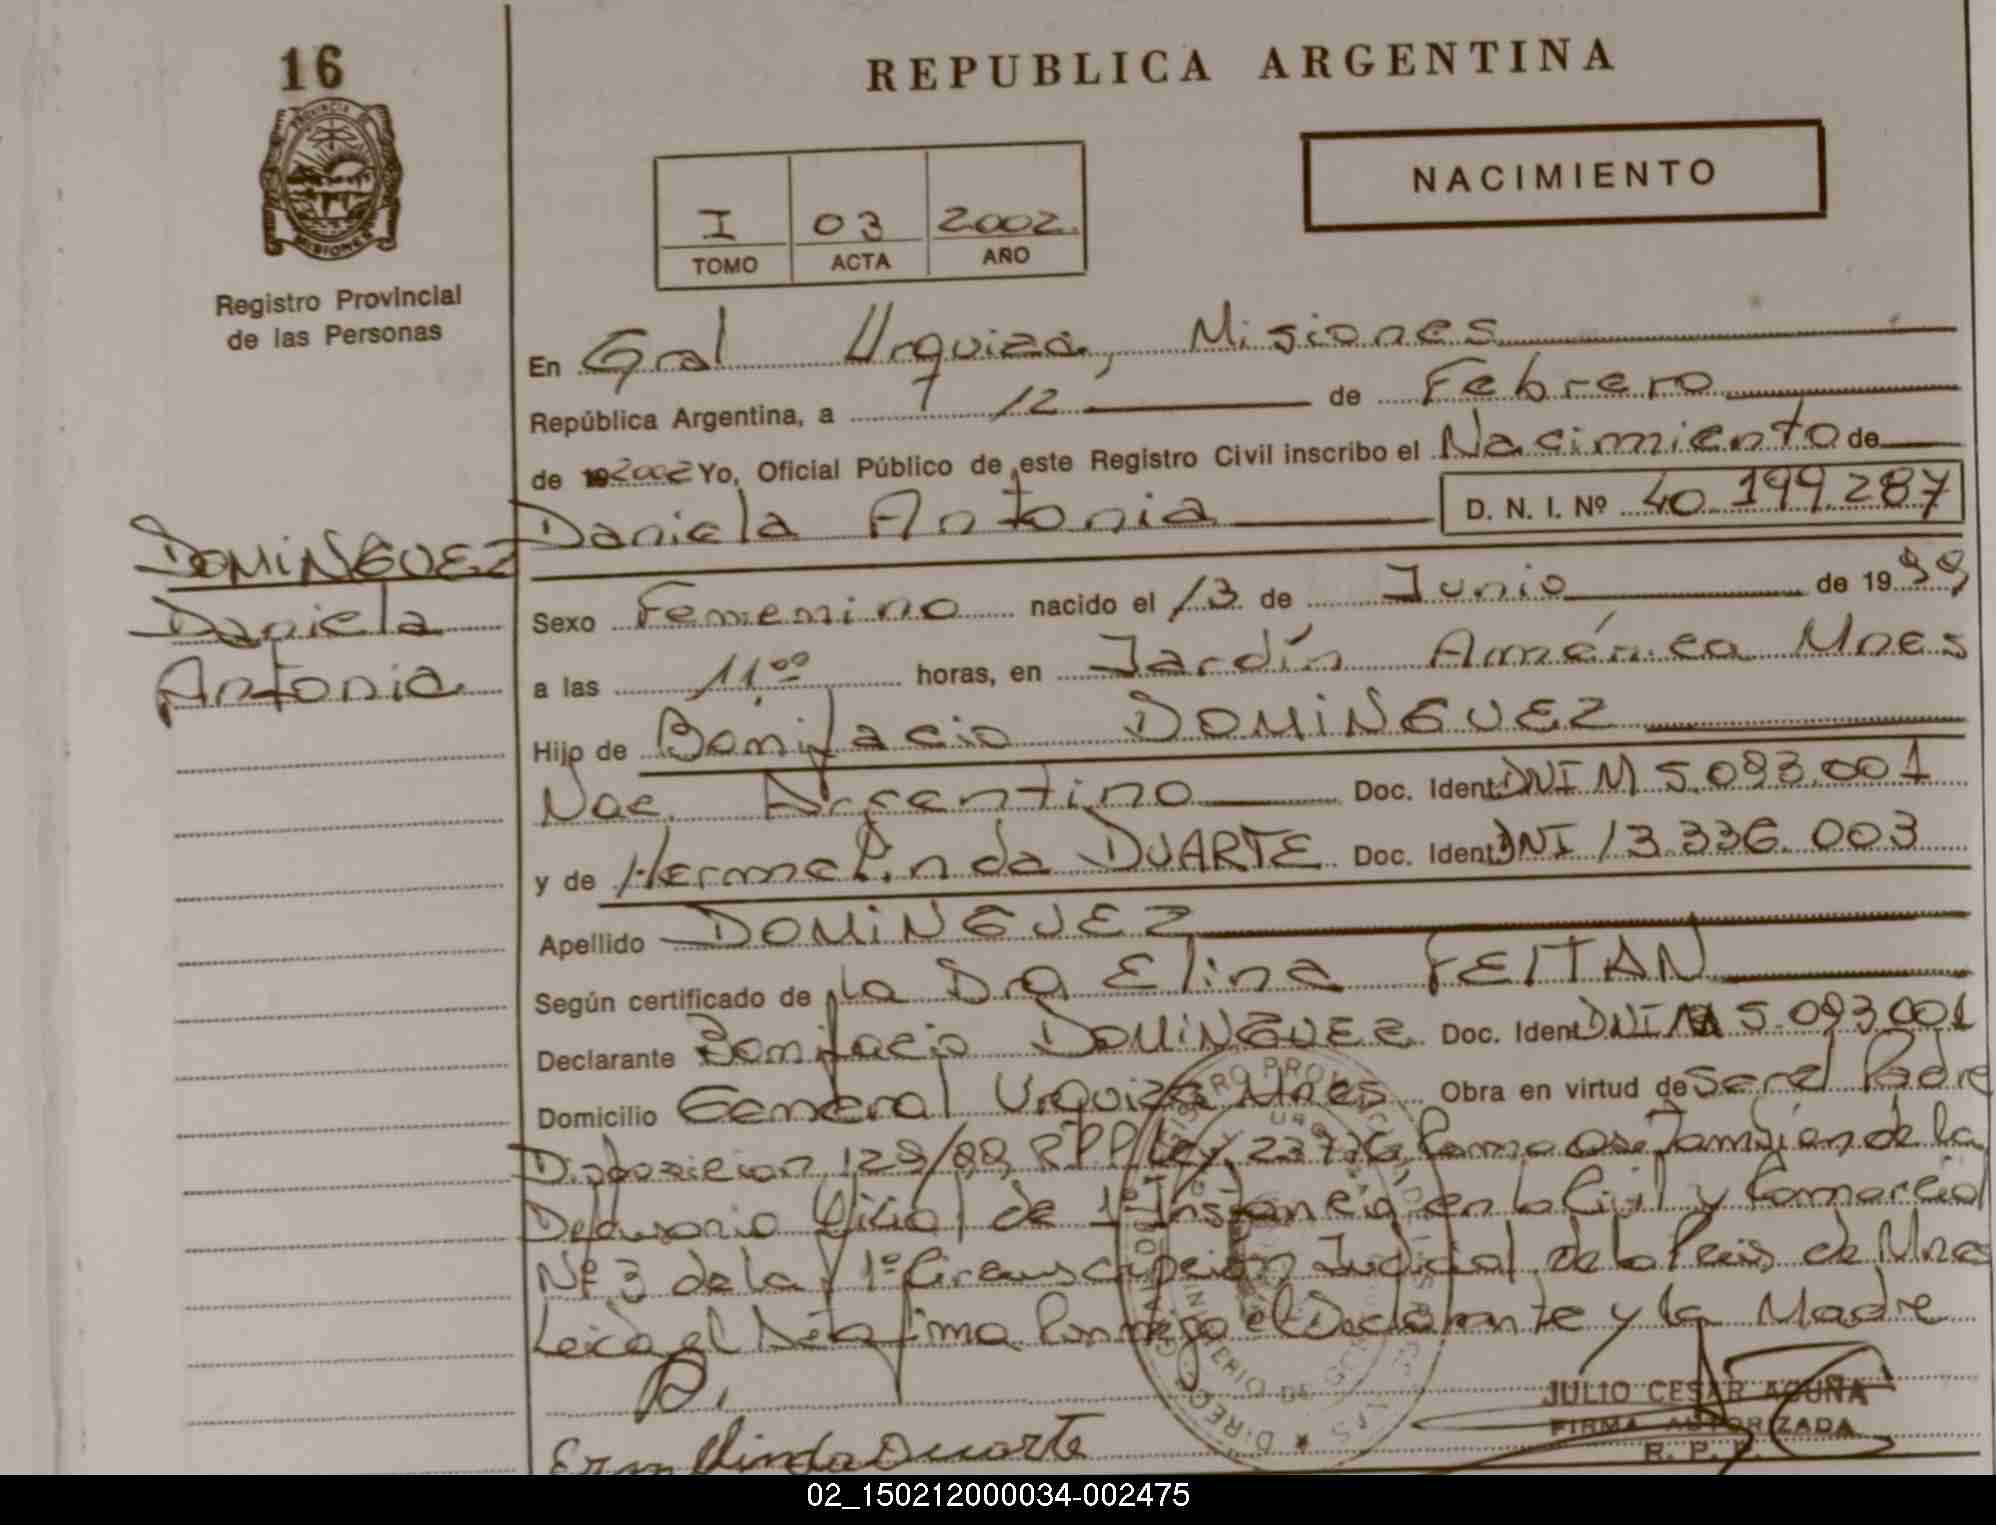 16
REPUBLICA ARGENTINA
NACIMIENTO
I 03 2002
TOMO ACTA AÑO
PROVINCIA DE MISIONES
Registro Provincial
de las Personas
En Gral Urquiza, Misiones
República Argentina, a 12 de Febrero
de 19 2002 Yo, Oficial Público de este Registro Civil inscribo el Nacimiento de
Daniela Antonia D. N. I. Nº 40.199.287
DOMINGUEZ
Daniela
Antonia
Sexo Femenino nacido el 13 de Junio de 1999
a las 11.00 horas, en Jardín América Mnes
Hijo de Bonifacio DOMINGUEZ
Nac. Argentino Doc. Ident DNI M 5.093.001
y de Hermelinda DUARTE Doc. Ident DNI 13.336.003
Apellido DOMINGUEZ
Según certificado de la Dra Elina FEITAN
Declarante Bonifacio DOMINGUEZ Doc. Ident DNI M 5.093.001
Domicilio General Urquiza Mnes Obra en virtud de ser el Padre
Disposicion 128/88 RPP Ley 23776 Como así También de la
Defensoria Oficial de 1º Instancia en lo Civil y Comercial
Nº 3 de la 1º Circunscripción Judicial de la Pcia de Mnes
Leida el Acta firma Conmigo el Declarante y la Madre
JULIO CESAR ACUÑA
FIRMA AUTORIZADA
R. P. P.
Ermelinda Duarte
02_150212000034-002475